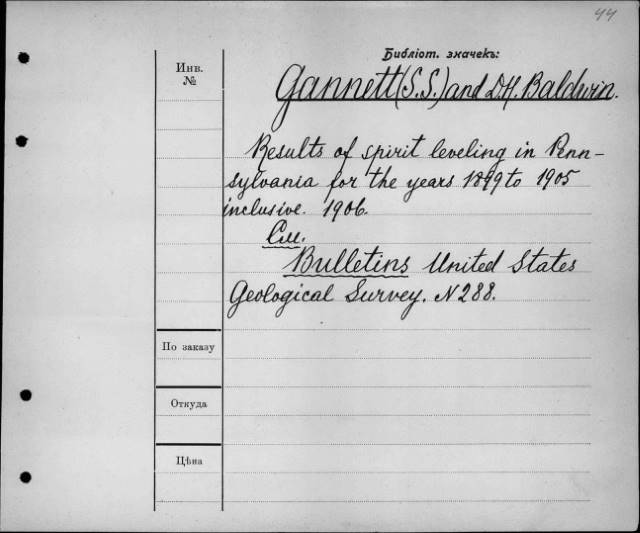 44
Библіот. значекъ:
Инв.
№
Gannett (S.S.) and D.H. Baldwin.
Results of spirit leveling in Penn-
sylvania for the years 1899 to 1905
inclusive. 1906.
См.
Bulletins United States
Geological Survey. N 288.
По заказу
Откуда
Цѣна